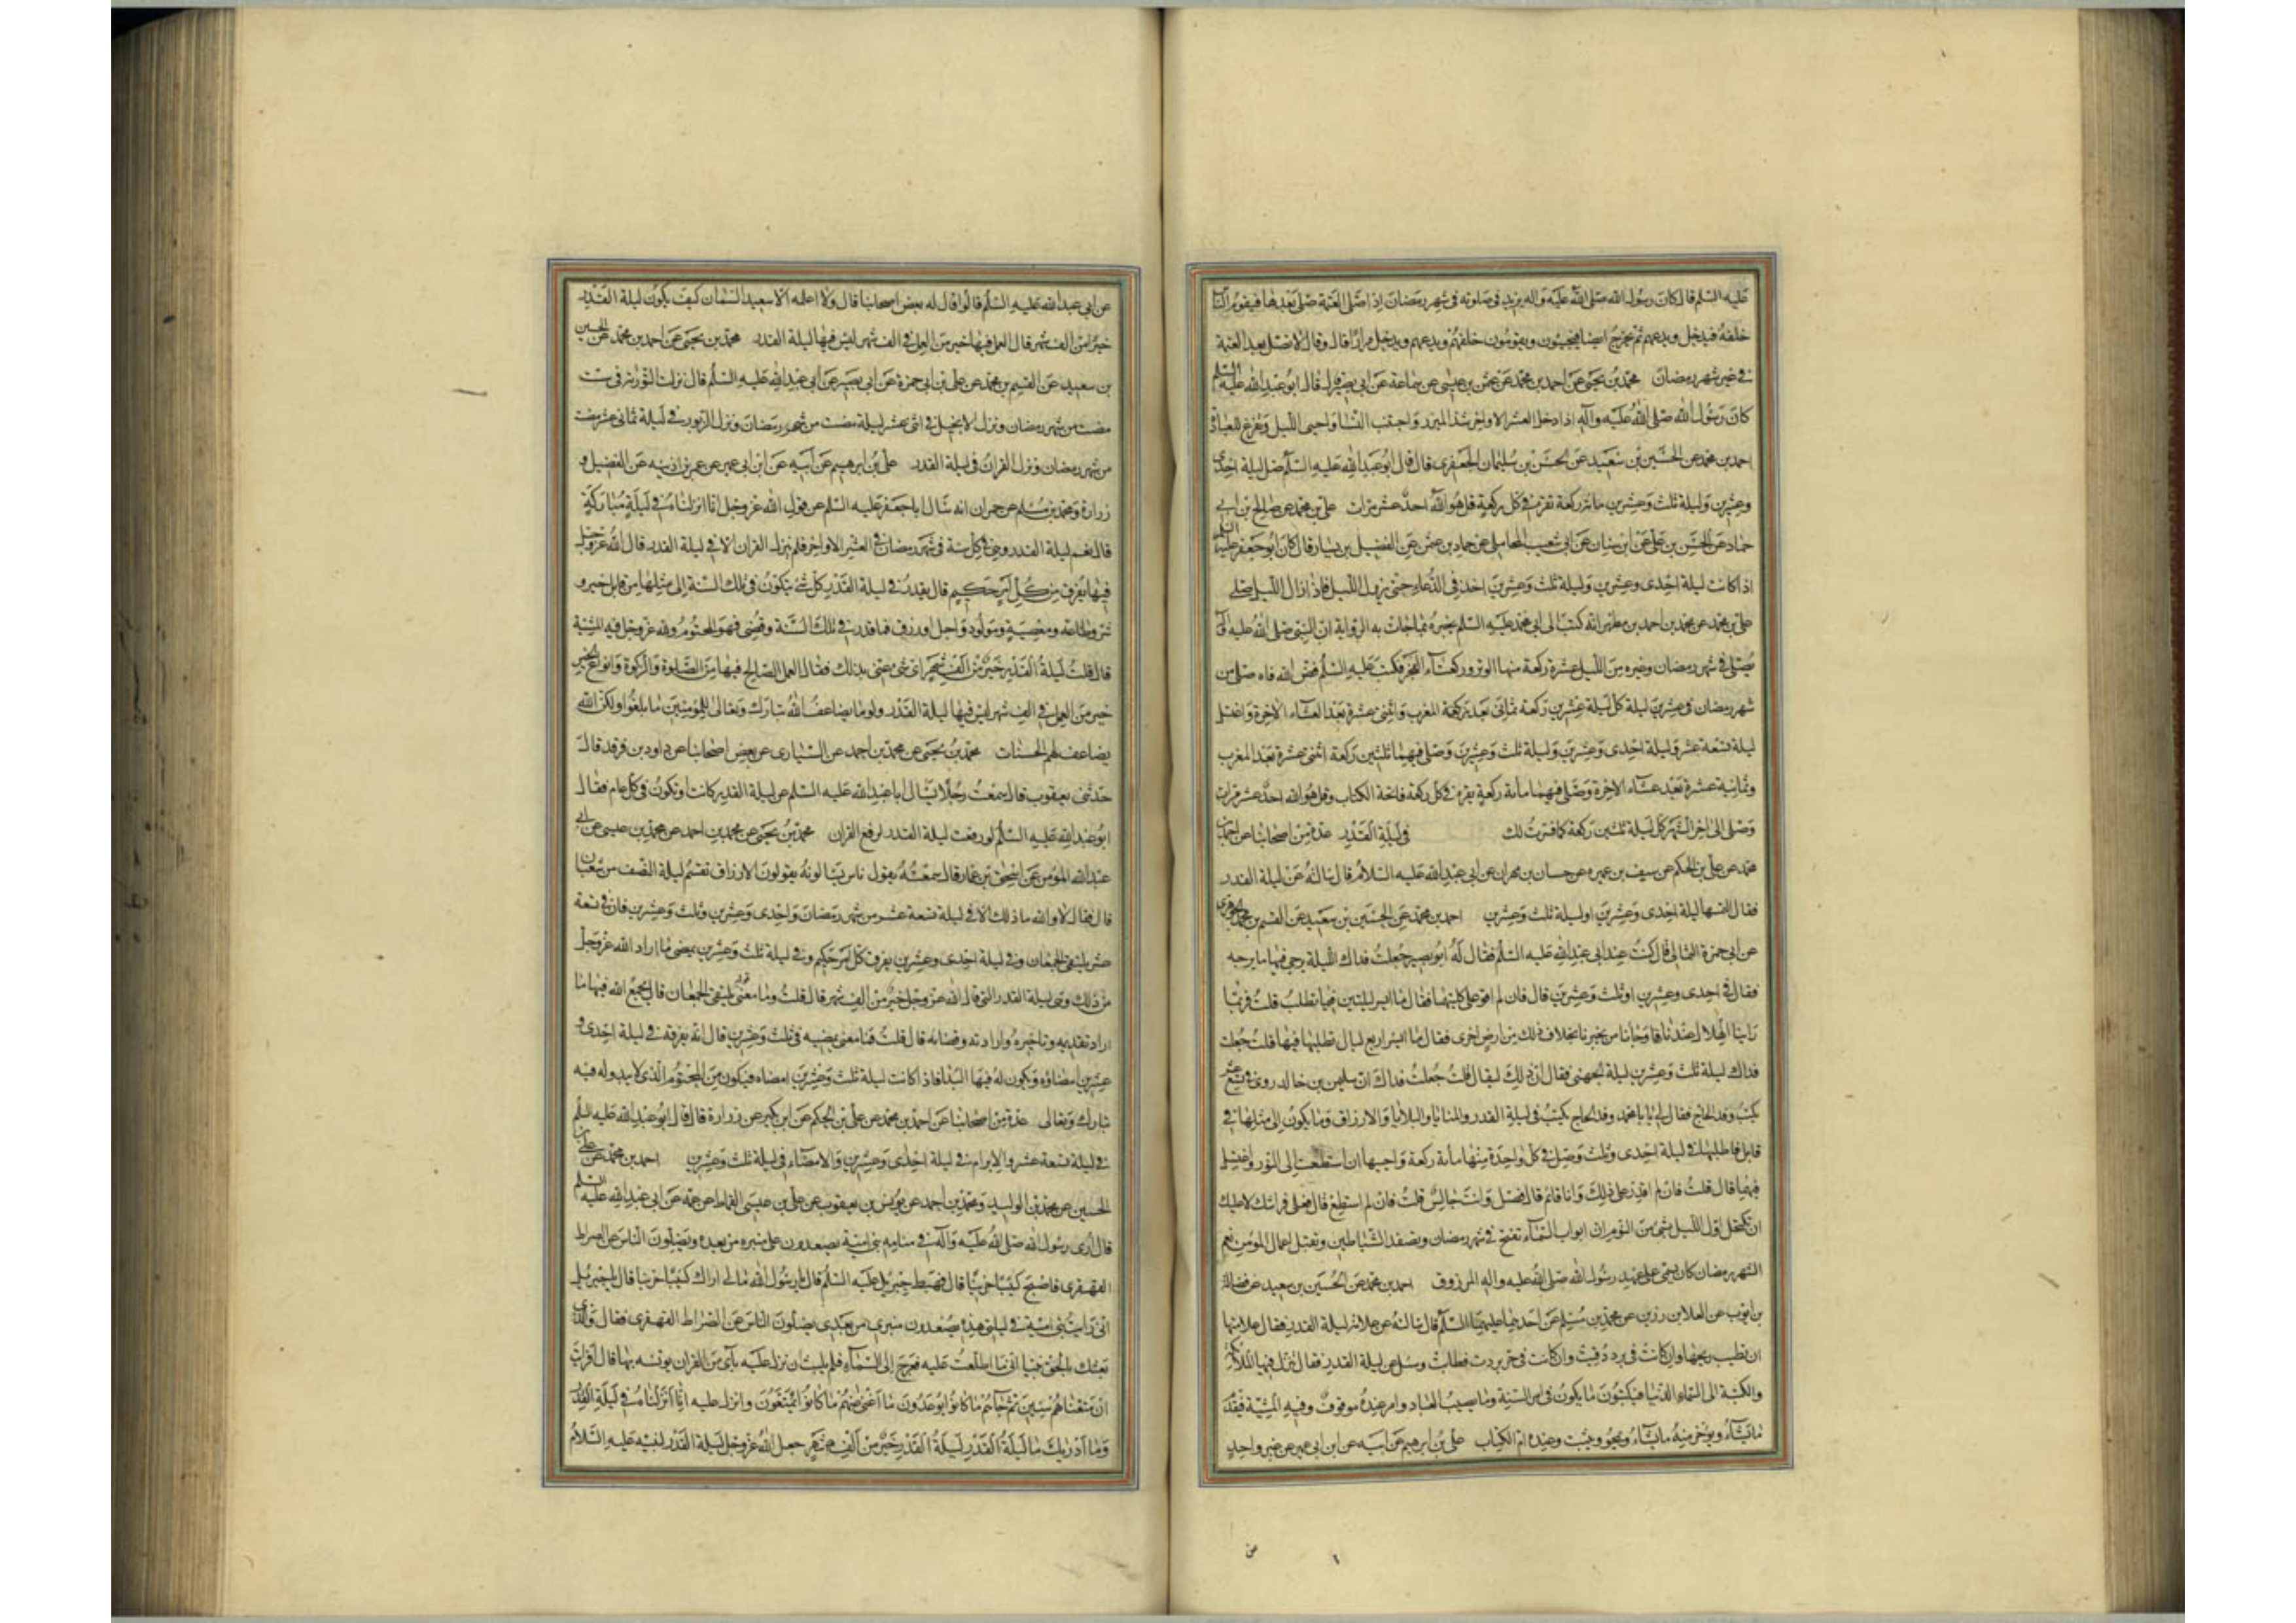 عليه السلم قال كان رسول الله صلى الله عليه واله يزيد في صلوته في شهر رمضان اذا صلى العتمة صلى بعدها فيقوم الناس
خلفه فيدخل ويدعهم ثم يخرج ايضا فيجيئون ويقومون خلفه فيدعهم ويدخل مرارا قال وقال لا تصل بعد العتمة
في غير شهر رمضان محمد بن يحيى عن احمد بن محمد عن عثمن بن عيسى عن سماعة عن ابى بصير قال قال ابو عبد الله عليه السلم
كان رسول الله صلى الله عليه واله اذا دخل العشر الاواخر شد الميزر واجتنب النسا واحيى الليل وتفرغ للعبادة
احمد بن محمد عن الحسين بن سعيد عن الحسن بن سليمان الجعفرى قال قال ابو عبد الله عليه السلم صل ليلة احدى
وعشرين وليلة ثلث وعشرين مائة ركعة تقرء في كل ركعة قل هو الله احد عشر مرات على بن محمد عن صالح بن ابي
حماد عن الحسن بن على عن ابن سنان عن ابى شعيب المحاملى عن حماد بن عثمن عن الفضيل بن يسار قال كان ابو جعفر عليه السلم
اذا كانت ليلة احدى وعشرين وليلة ثلث وعشرين اخذ في الدعاء حتى يزول الليل فاذا زال الليل صلى
على بن محمد عن محمد بن احمد بن مطهر انه كتب الى ابى محمد عليه السلم يخبره بما جاءت به الرواية ان النبى صلى الله عليه واله
يصلى في شهر رمضان وغيره من الليل عشرة ركعة منها الوتر وركعتاء الفجر فكتب عليه السلم فض الله فاه صلى من
شهر رمضان في عشرين ليلة كل ليلة عشرين ركعة ثمانى بعد المغرب واثنتى عشرة بعد العشاء الاخرة واغتسل
ليلة تسعة عشر وليلة احدى وعشرين وليلة ثلث وعشرين وصلى فيهما ثلثين ركعة اثنتى عشرة بعد المغرب
وثمانية عشرة بعد عشاء الاخرة وصلى فيهما مائة ركعة يقرء في كل ركعة فاتحة الكتاب وقل هو الله احد عشر مرات
وصلى الى اخر الشهر كل ليلة ثلثين ركعة كما فسرت لك في ليلة القدر عدة من اصحابنا عن احمد بن
محمد عن على بن الحكم عن سيف بن عميره عن حسان بن مهران عن ابى عبد الله عليه السلام قال سالته عن ليلة القدر
فقال التمسها ليلة احدى وعشرين او ليلة ثلث وعشرين احمد بن محمد عن الحسين بن سعيد عن القسم بن محمد الجوهرى
عن ابى حمزة الثمالى قال كنت عند ابى عبد الله عليه السلم فقال له ابو بصير جعلت فداك الليلة يرجى فيها ما يرجى
فقال في احدى وعشرين او ثلث وعشرين قال فان لم اقو على كلتيهما فقال ما ايسر ليلتين فيما تطلب قلت فربما
راينا الهلال عندنا وجاءنا من يخبرنا بخلاف ذلك من ارض اخرى فقال ما ايسر اربع ليال تطلبها فيها قلت جعلت
فداك ليلة ثلث وعشرين ليلة الجهنى فقال ان ذلك ليقال قلت جعلت فداك ان سليمن بن خالد روى في تسع عشر
يكتب وفد الحاج فقال لى يا با محمد وفد الحاج يكتب في ليلة القدر والمنايا والبلايا والارزاق وما يكون الى مثلها في
قابل فاطلبها في ليلة احدى وثلث وصل في كل واحدة منهما مائة ركعة واحيهما ان استطعت الى النور واغتسل
فيهما قال قلت فان لم اقدر على ذلك وانا قائم قال فصل وانت جالس قلت فان لم استطع قال فعلى فراشك لا عليك
ان تكتحل اول الليل بشئ من النوم ان ابواب السماء تفتح في شهر رمضان وتصفد الشياطين وتقبل اعمال المؤمنين نعم
الشهر رمضان كان يسمى على عهد رسول الله صلى الله عليه واله المرزوق احمد بن محمد عن الحسين بن سعيد عن فضالة
بن ايوب عن العلا بن رزين عن محمد بن مسلم عن احدهما عليهما السلم قال سالته عن علامة ليلة القدر فقال علامتها
ان تطيب ريحها وان كانت في برد دفئت وان كانت في حر بردت فطابت وسئل عن ليلة القدر فقال تنزل فيها الملائكة
والكتبة الى السماء الدنيا فيكتبون ما يكون في امر السنة وما يصيب العباد وامر عنده موقوف وفيه المشية فيقدم
ما يشاء ويؤخر منه ما يشاء ويمحو ويثبت وعنده ام الكتاب على بن ابرهيم عن ابيه عن ابن ابى عمير عن غير واحد
عن ابى عبد الله عليه السلم قالوا قال له بعض اصحابنا قال ولا اعلمه الا سعيد السمان كيف يكون ليلة القدر
خيرا من الف شهر قال العمل فيها خير من العمل في الف شهر ليس فيها ليلة القدر محمد بن يحيى عن احمد بن محمد عن الحسين
بن سعيد عن القسم بن محمد عن على بن ابى حمزة عن ابى بصير عن ابى عبد الله عليه السلم قال نزلت التورية في ست
مضت من شهر رمضان ونزل الانجيل في اثنى عشر ليلة مضت من شهر رمضان ونزل الزبور في ليلة ثمانى عشر مضت
من شهر رمضان ونزل القران في ليلة القدر على بن ابرهيم عن ابيه عن ابن ابى عمير عن عمر بن اذينه عن الفضيل و
زرارة ومحمد بن مسلم عن حمران انه سال ابا جعفر عليه السلم عن قول الله عز وجل انا انزلناه في ليلة مباركة
قال نعم ليلة القدر وهى في كل سنة في شهر رمضان في العشر الاواخر فلم ينزل القران الا في ليلة القدر قال الله عز وجل
فيها يفرق من كل امر حكيم قال يقدر في ليلة القدر كل شئ يكون في تلك السنة الى مثلها من قابل خير و
شر وطاعة ومعصية ومولود واجل او رزق فما قدر في تلك السنة وقضى فهو المحتوم ولله عز وجل فيه المشية
قال قلت ليلة القدر خير من الف شهر اى شئ عنى بذلك فقال العمل الصالح فيها من الصلوة والزكوة وانواع الخير
خير من العمل في الف شهر ليس فيها ليلة القدر ولو ما يضاعف الله تبارك وتعالى للمؤمنين ما بلغوا ولكن الله
يضاعف لهم الحسنات محمد بن يحيى عن محمد بن احمد عن السيارى عن بعض اصحابنا عن داود بن فرقد قال
حدثنى يعقوب قال سمعت رجلا يسال ابا عبد الله عليه السلم عن ليلة القدر كانت او تكون في كل عام فقال
ابو عبد الله عليه السلم لو رفعت ليلة القدر لرفع القران محمد بن يحيى عن محمد بن احمد عن محمد بن عيسى عن ابى
عبد الله المؤمن عن اسحق بن عمار قال سمعته يقول ناس يسالونه يقولون الارزاق تقسم ليلة النصف من شعبان
قال فقال لا والله ما ذلك الا في ليلة تسعة عشر من شهر رمضان واحدى وعشرين وثلث وعشرين فان في تسعة
عشر يلتقى الجمعان وفي ليلة احدى وعشرين يفرق كل امر حكيم وفي ليلة ثلث وعشرين يمضى ما اراد الله عز وجل
من ذلك وهى ليلة القدر التى قال الله عز وجل خير من الف شهر قال قلت وما معنى قوله يلتقى الجمعان قال يجمع الله فيها ما
اراد تقديمه وتاخيره وارادته وقضائه قال قلت فما معنى يمضيه في ثلث وعشرين قال انه يفرقه في ليلة احدى و
عشرين امضاؤه ويكون له فيها البدا فاذا كانت ليلة ثلث وعشرين امضاه فيكون من المحتوم الذى لا يبدو له فيه
تبارك وتعالى عدة من اصحابنا عن احمد بن محمد عن على بن الحكم عن ابن بكير عن زرارة قال قال ابو عبد الله عليه السلم
في ليلة تسعة عشر والابرام في ليلة احدى وعشرين والامضاء في ليلة ثلث وعشرين احمد بن محمد عن على بن
الحسين عن محمد بن الوليد ومحمد بن احمد عن يونس بن يعقوب عن على بن عيسى القماط عن عمه عن ابى عبد الله عليه السلم
قال ارى رسول الله صلى الله عليه واله في منامه بنى امية يصعدون على منبره من بعده ويضلون الناس عن الصراط
القهقرى فاصبح كئيبا حزينا قال فهبط جبريل عليه السلم فقال يا رسول الله ما لى اراك كئيبا حزينا قال يا جبريل
انى رايت بنى امية في ليلتى هذه يصعدون منبرى من بعدى يضلون الناس عن الصراط القهقرى فقال والذى
بعثك بالحق نبيا انى ما اطلعت عليه فعرج الى السماء فلم يلبث ان نزل عليه بآى من القران يونسه بها قال افرايت
ان متعناهم سنين ثم جاءهم ما كانوا يوعدون ما اغنى عنهم ما كانوا يمتعون وانزل عليه انا انزلناه في ليلة القدر
وما ادريك ما ليلة القدر ليلة القدر خير من الف شهر جعل الله عز وجل ليلة القدر لنبيه عليه السلام